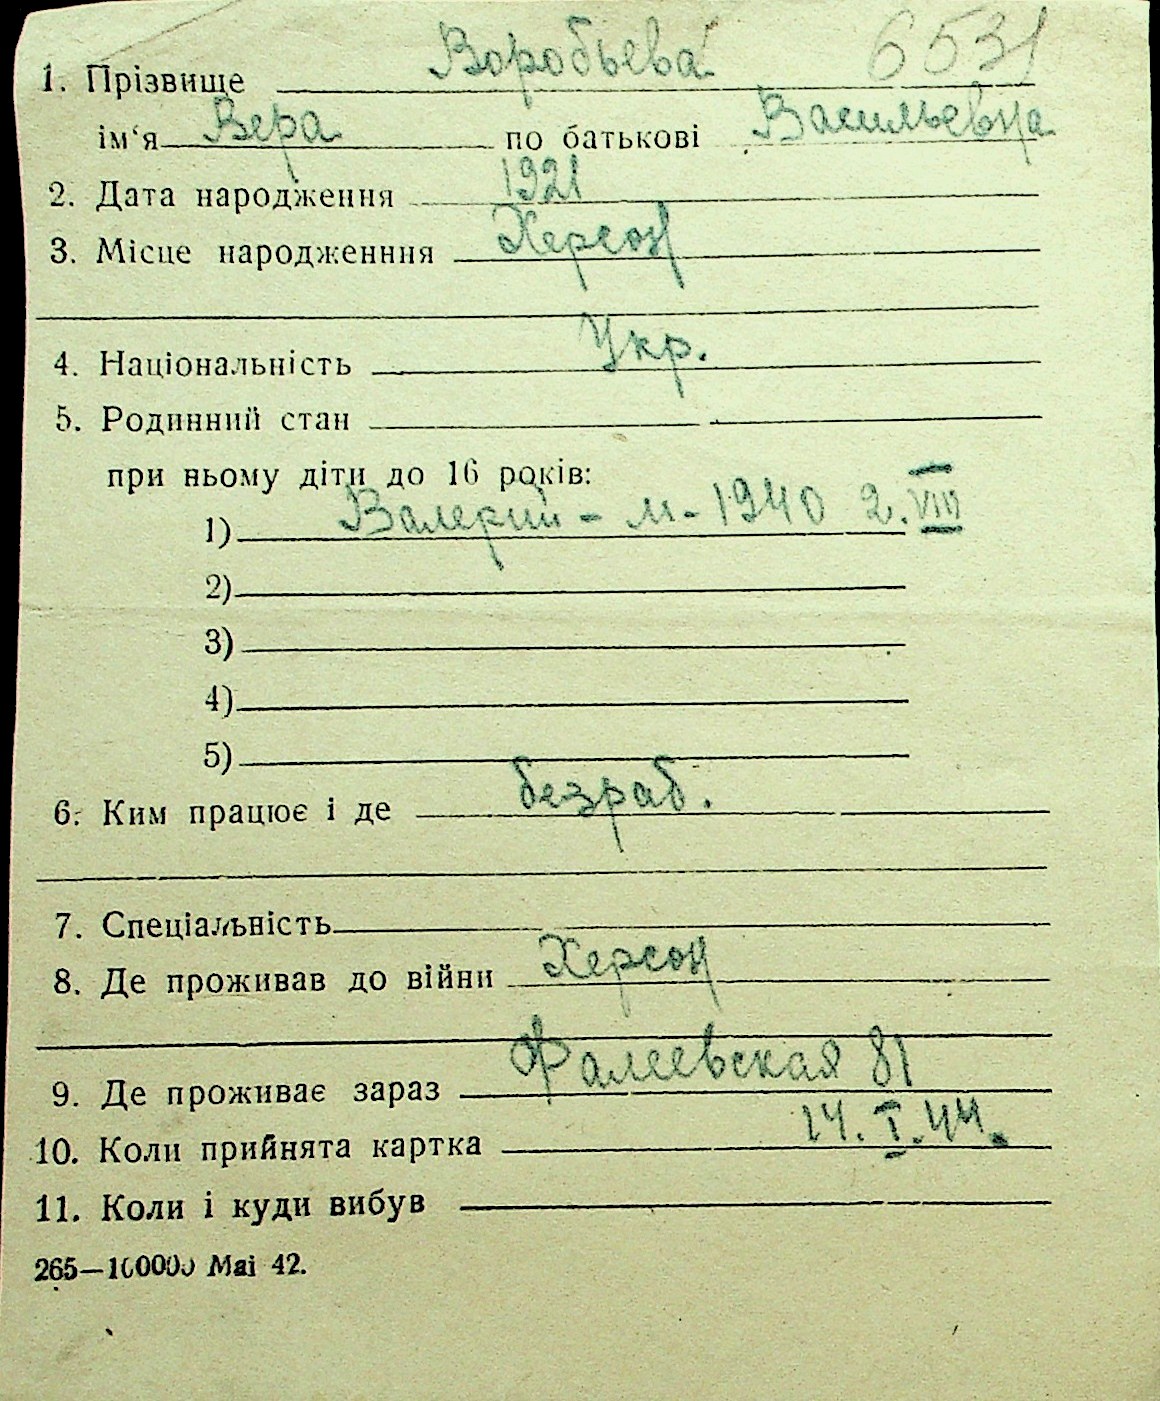 1. Прізвище Воробьева 6531
ім‘я Вера по батькові Васильевна
2. Дата народження 1921
3. Місце народженння Херсон
4. Національність Укр.
5. Родинний стан
при ньому діти до 16 років:
1) Валерий - м - 1940 2. VIII
2)
3)
4)
5)
6. Ким працює і де безраб.
7. Спеціальність
8. Де проживав до війни Херсон
9. Де проживає зараз Фалеевская 81
10. Коли прийнята картка 14. I. 44.
11. Коли і куди вибув
265—100000 Маі 42.